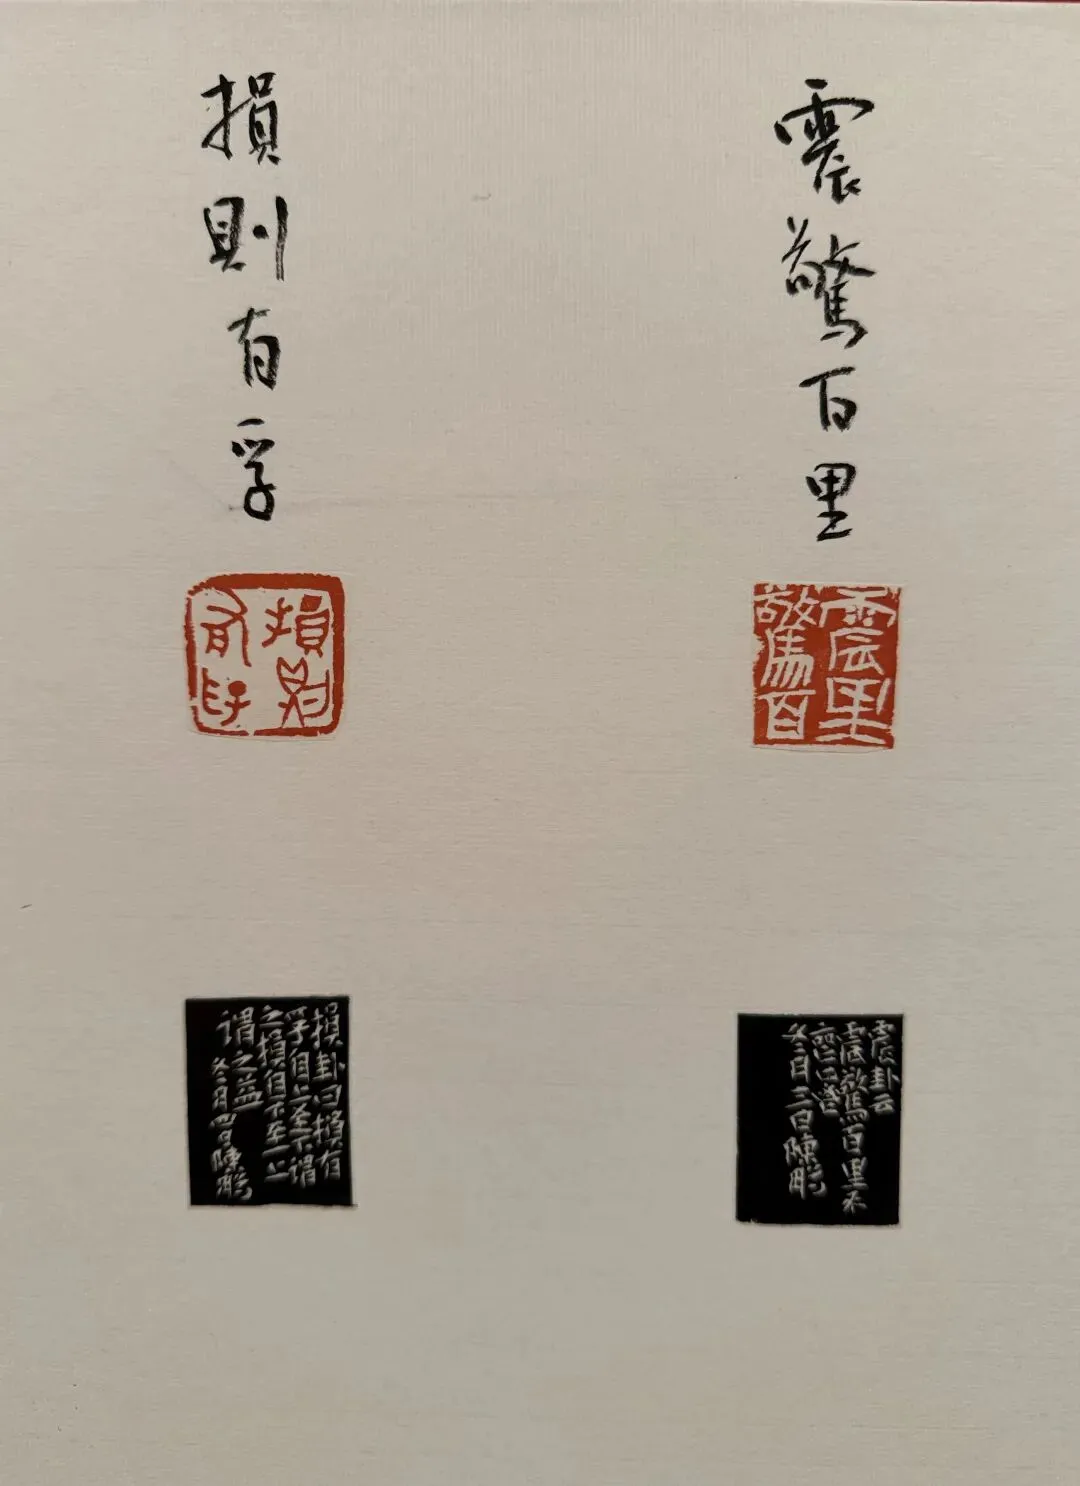 震驚百里
震里
驚百
震卦云
震驚百里不
喪匕鬯
冬二月三日陳鵬
損則有孚
損則
有孚
損卦曰損有
孚自上至下謂
之損自下至上
谓之益
冬二月四日陳鵬